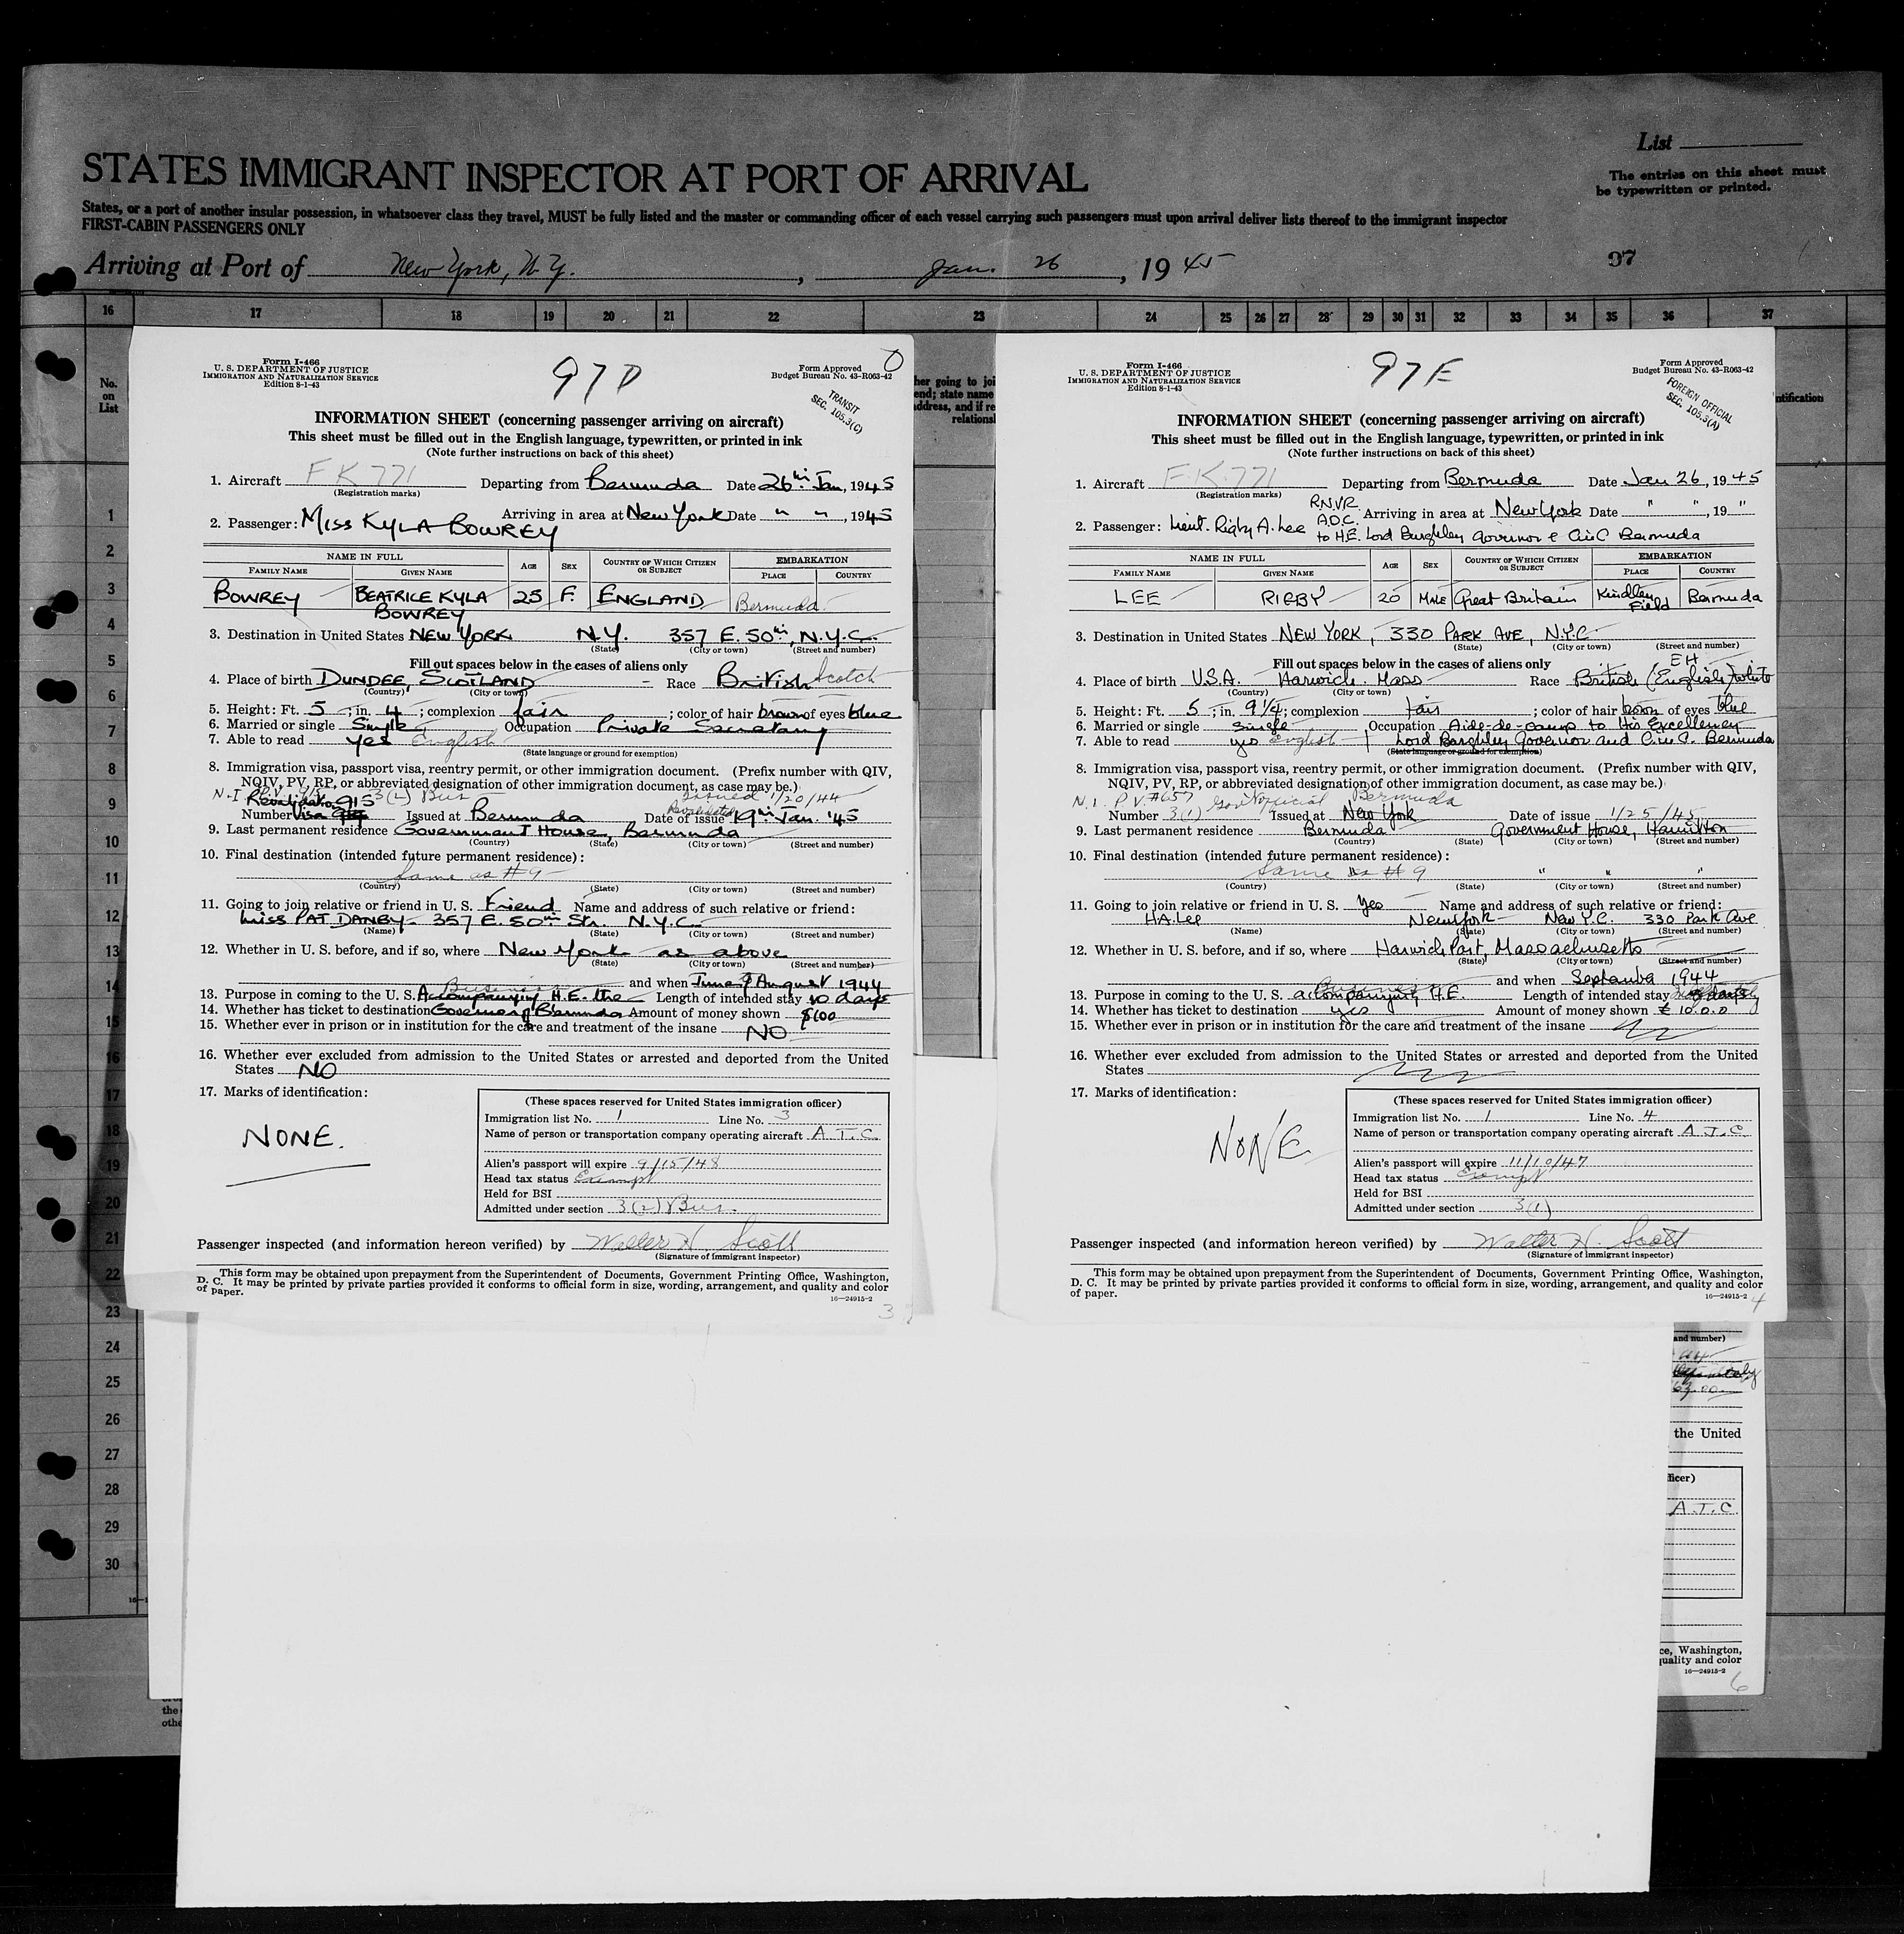 List
STATES IMMIGRANT INSPECTOR AT PORT OF ARRIVAL
The entries on this sheet must
be typewritten or printed.
States, or a port of another insular possession, in whatsoever class they travel, MUST be fully listed and the master or commanding officer of each vessel carrying such passengers must upon arrival deliver lists thereof to the immigrant inspector
FIRST-CABIN PASSENGERS ONLY
Arriving at Port of New York, N.Y. , Jan. 26 , 19 45
97
16 17 18 19 20 21 22 23 24 25 26 27 28 29 30 31 32 33 34 35 36 37
No.
on
List
1
2
3
4
5
6
7
8
9
10
11
12
13
14
15
16
17
18
19
20
21
22
23
24
25
26
27
28
29
30
Form I-466
U. S. DEPARTMENT OF JUSTICE
IMMIGRATION AND NATURALIZATION SERVICE
Edition 8-1-43
97D
Form Approved
Budget Bureau No. 43-R063-42
TRANSIT
SEC. 105.3(C)
INFORMATION SHEET (concerning passenger arriving on aircraft)
This sheet must be filled out in the English language, typewritten, or printed in ink
(Note further instructions on back of this sheet)
1. Aircraft FK 771 Departing from Bermuda Date 26th Jan, 1945
(Registration marks)
Arriving in area at New York Date " " , 1945
2. Passenger: MISS KYLA BOWREY
NAME IN FULL AGE SEX COUNTRY OF WHICH CITIZEN OR SUBJECT EMBARKATION
FAMILY NAME GIVEN NAME PLACE COUNTRY
BOWREY BEATRICE KYLA 25 F. ENGLAND Bermuda
BOWREY
3. Destination in United States NEW YORK N.Y. 357 E. 50th, N.Y.C.
(State) (City or town) (Street and number)
Fill out spaces below in the cases of aliens only
4. Place of birth DUNDEE, SCOTLAND - Race British Scotch
(Country) (City or town)
5. Height: Ft. 5 ; in. 4 ; complexion fair ; color of hair brown of eyes blue
6. Married or single Single Occupation Private Secretary
7. Able to read yes English
(State language or ground for exemption)
8. Immigration visa, passport visa, reentry permit, or other immigration document. (Prefix number with QIV,
NQIV, PV, RP, or abbreviated designation of other immigration document, as case may be.)
N.I 3(2) Bus Issued 1/20/44
Revalidation 915 Revalidated
Number Visa Issued at Bermuda Date of issue 19th Jan. '45
9. Last permanent residence Government House, Bermuda
(Country) (State) (City or town) (Street and number)
10. Final destination (intended future permanent residence):
Same as #9
(Country) (State) (City or town) (Street and number)
11. Going to join relative or friend in U. S. Friend Name and address of such relative or friend:
Miss PAT DANBY - 357 E. 50th Str. N.Y.C.
(Name) (State) (City or town) (Street and number)
12. Whether in U. S. before, and if so, where New York as above
(State) (City or town) (Street and number)
Business and when June & August 1944
13. Purpose in coming to the U. S. Accompanying H.E. the Length of intended stay 10 days
14. Whether has ticket to destination Governor of Bermuda Amount of money shown $100
15. Whether ever in prison or in institution for the care and treatment of the insane NO
16. Whether ever excluded from admission to the United States or arrested and deported from the United
States NO
17. Marks of identification:
NONE.
(These spaces reserved for United States immigration officer)
Immigration list No. 1 Line No. 3
Name of person or transportation company operating aircraft A.T.C.
Alien's passport will expire 9/15/48
Head tax status Exempt
Held for BSI
Admitted under section 3(2) Bus.
Passenger inspected (and information hereon verified) by Walter H. Scott
(Signature of immigrant inspector)
This form may be obtained upon prepayment from the Superintendent of Documents, Government Printing Office, Washington,
D. C. It may be printed by private parties provided it conforms to official form in size, wording, arrangement, and quality and color
of paper.
16—24915-2
3
her going to joi
end; state name
address, and if re
relations
Form I-466
U. S. DEPARTMENT OF JUSTICE
IMMIGRATION AND NATURALIZATION SERVICE
Edition 8-1-43
97E
Form Approved
Budget Bureau No. 43-R063-42
FOREIGN OFFICIAL
SEC. 105.3(A)
INFORMATION SHEET (concerning passenger arriving on aircraft)
This sheet must be filled out in the English language, typewritten, or printed in ink
(Note further instructions on back of this sheet)
1. Aircraft F.K.771 Departing from Bermuda Date Jan 26, 1945
(Registration marks)
R.N.V.R. Arriving in area at New York Date " " , 19 "
2. Passenger: Lieut. Rigby A. Lee A.D.C. to H.E. Lord Burghley Governor & C in C Bermuda
NAME IN FULL AGE SEX COUNTRY OF WHICH CITIZEN OR SUBJECT EMBARKATION
FAMILY NAME GIVEN NAME PLACE COUNTRY
LEE RIGBY 20 MALE Great Britain Kindley Field Bermuda
3. Destination in United States NEW YORK, 330 PARK AVE, N.Y.C.
(State) (City or town) (Street and number)
Fill out spaces below in the cases of aliens only EH
4. Place of birth U.S.A. Harwich. Mass Race British (English) white
(Country) (City or town)
5. Height: Ft. 5 ; in. 9¼ ; complexion fair ; color of hair brown of eyes blue
6. Married or single Single Occupation Aide-de-camp to His Excellency
7. Able to read yes English Lord Burghley Governor and C.in.C. Bermuda
(State language or ground for exemption)
8. Immigration visa, passport visa, reentry permit, or other immigration document. (Prefix number with QIV,
NQIV, PV, RP, or abbreviated designation of other immigration document, as case may be.)
N.I. P.V. #657 Gov't official Bermuda
Number 3(1) Issued at New York Date of issue 1/25/45
9. Last permanent residence Bermuda Government House, Hamilton
(Country) (State) (City or town) (Street and number)
10. Final destination (intended future permanent residence):
Same as #9 " " "
(Country) (State) (City or town) (Street and number)
11. Going to join relative or friend in U. S. Yes Name and address of such relative or friend:
H.A. Lee New York New Y.C. 330 Park Ave
(Name) (State) (City or town) (Street and number)
12. Whether in U. S. before, and if so, where Harwich Port, Massachusetts
(State) (City or town) (Street and number)
Business and when September 1944
13. Purpose in coming to the U. S. accompanying H.E. Length of intended stay
14. Whether has ticket to destination yes Amount of money shown £ 10.0.0
15. Whether ever in prison or in institution for the care and treatment of the insane
16. Whether ever excluded from admission to the United States or arrested and deported from the United
States
17. Marks of identification:
NONE
(These spaces reserved for United States immigration officer)
Immigration list No. 1 Line No. 4
Name of person or transportation company operating aircraft A.T.C.
Alien's passport will expire 11/10/47
Head tax status Exempt
Held for BSI
Admitted under section 3(1)
Passenger inspected (and information hereon verified) by Walter H. Scott
(Signature of immigrant inspector)
This form may be obtained upon prepayment from the Superintendent of Documents, Government Printing Office, Washington,
D. C. It may be printed by private parties provided it conforms to official form in size, wording, arrangement, and quality and color
of paper.
16—24915-2
4
ntification
and number)
the United
ficer)
A.T.C.
ce, Washington,
quality and color
16—24915-2
6
the
othe